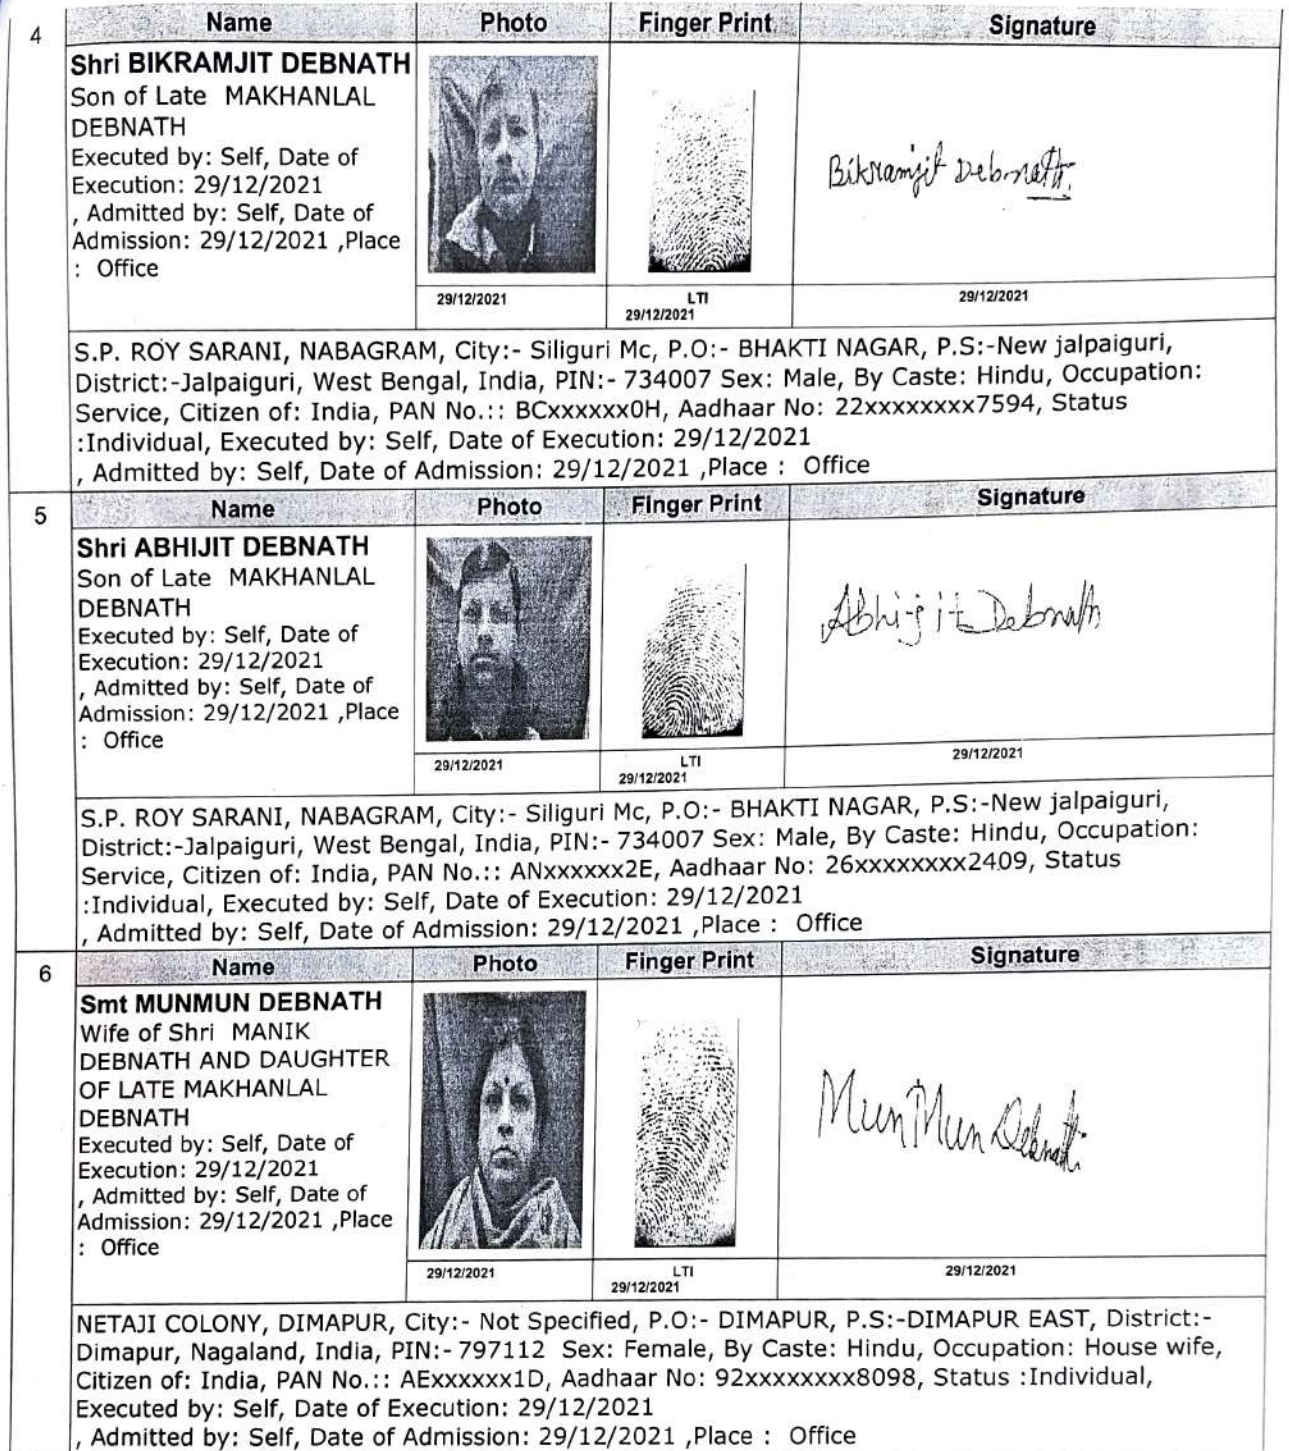 4
Name Photo Finger Print Signature
Shri BIKRAMJIT DEBNATH
Son of Late MAKHANLAL
DEBNATH
Executed by: Self, Date of
Execution: 29/12/2021
, Admitted by: Self, Date of
Admission: 29/12/2021 ,Place
: Office
Bikramjit Debnath.
29/12/2021 LTI 29/12/2021
29/12/2021
S.P. ROY SARANI, NABAGRAM, City:- Siliguri Mc, P.O:- BHAKTI NAGAR, P.S:-New jalpaiguri,
District:-Jalpaiguri, West Bengal, India, PIN:- 734007 Sex: Male, By Caste: Hindu, Occupation:
Service, Citizen of: India, PAN No.:: BCxxxxxx0H, Aadhaar No: 22xxxxxxxx7594, Status
:Individual, Executed by: Self, Date of Execution: 29/12/2021
, Admitted by: Self, Date of Admission: 29/12/2021 ,Place : Office
5
Name Photo Finger Print Signature
Shri ABHIJIT DEBNATH
Son of Late MAKHANLAL
DEBNATH
Executed by: Self, Date of
Execution: 29/12/2021
, Admitted by: Self, Date of
Admission: 29/12/2021 ,Place
: Office
Abhijit Debnath
29/12/2021 LTI 29/12/2021
29/12/2021
S.P. ROY SARANI, NABAGRAM, City:- Siliguri Mc, P.O:- BHAKTI NAGAR, P.S:-New jalpaiguri,
District:-Jalpaiguri, West Bengal, India, PIN:- 734007 Sex: Male, By Caste: Hindu, Occupation:
Service, Citizen of: India, PAN No.:: ANxxxxxx2E, Aadhaar No: 26xxxxxxxx2409, Status
:Individual, Executed by: Self, Date of Execution: 29/12/2021
, Admitted by: Self, Date of Admission: 29/12/2021 ,Place : Office
6
Name Photo Finger Print Signature
Smt MUNMUN DEBNATH
Wife of Shri MANIK
DEBNATH AND DAUGHTER
OF LATE MAKHANLAL
DEBNATH
Executed by: Self, Date of
Execution: 29/12/2021
, Admitted by: Self, Date of
Admission: 29/12/2021 ,Place
: Office
MunMun Debnath
29/12/2021 LTI 29/12/2021
29/12/2021
NETAJI COLONY, DIMAPUR, City:- Not Specified, P.O:- DIMAPUR, P.S:-DIMAPUR EAST, District:-
Dimapur, Nagaland, India, PIN:- 797112 Sex: Female, By Caste: Hindu, Occupation: House wife,
Citizen of: India, PAN No.:: AExxxxxx1D, Aadhaar No: 92xxxxxxxx8098, Status :Individual,
Executed by: Self, Date of Execution: 29/12/2021
, Admitted by: Self, Date of Admission: 29/12/2021 ,Place : Office